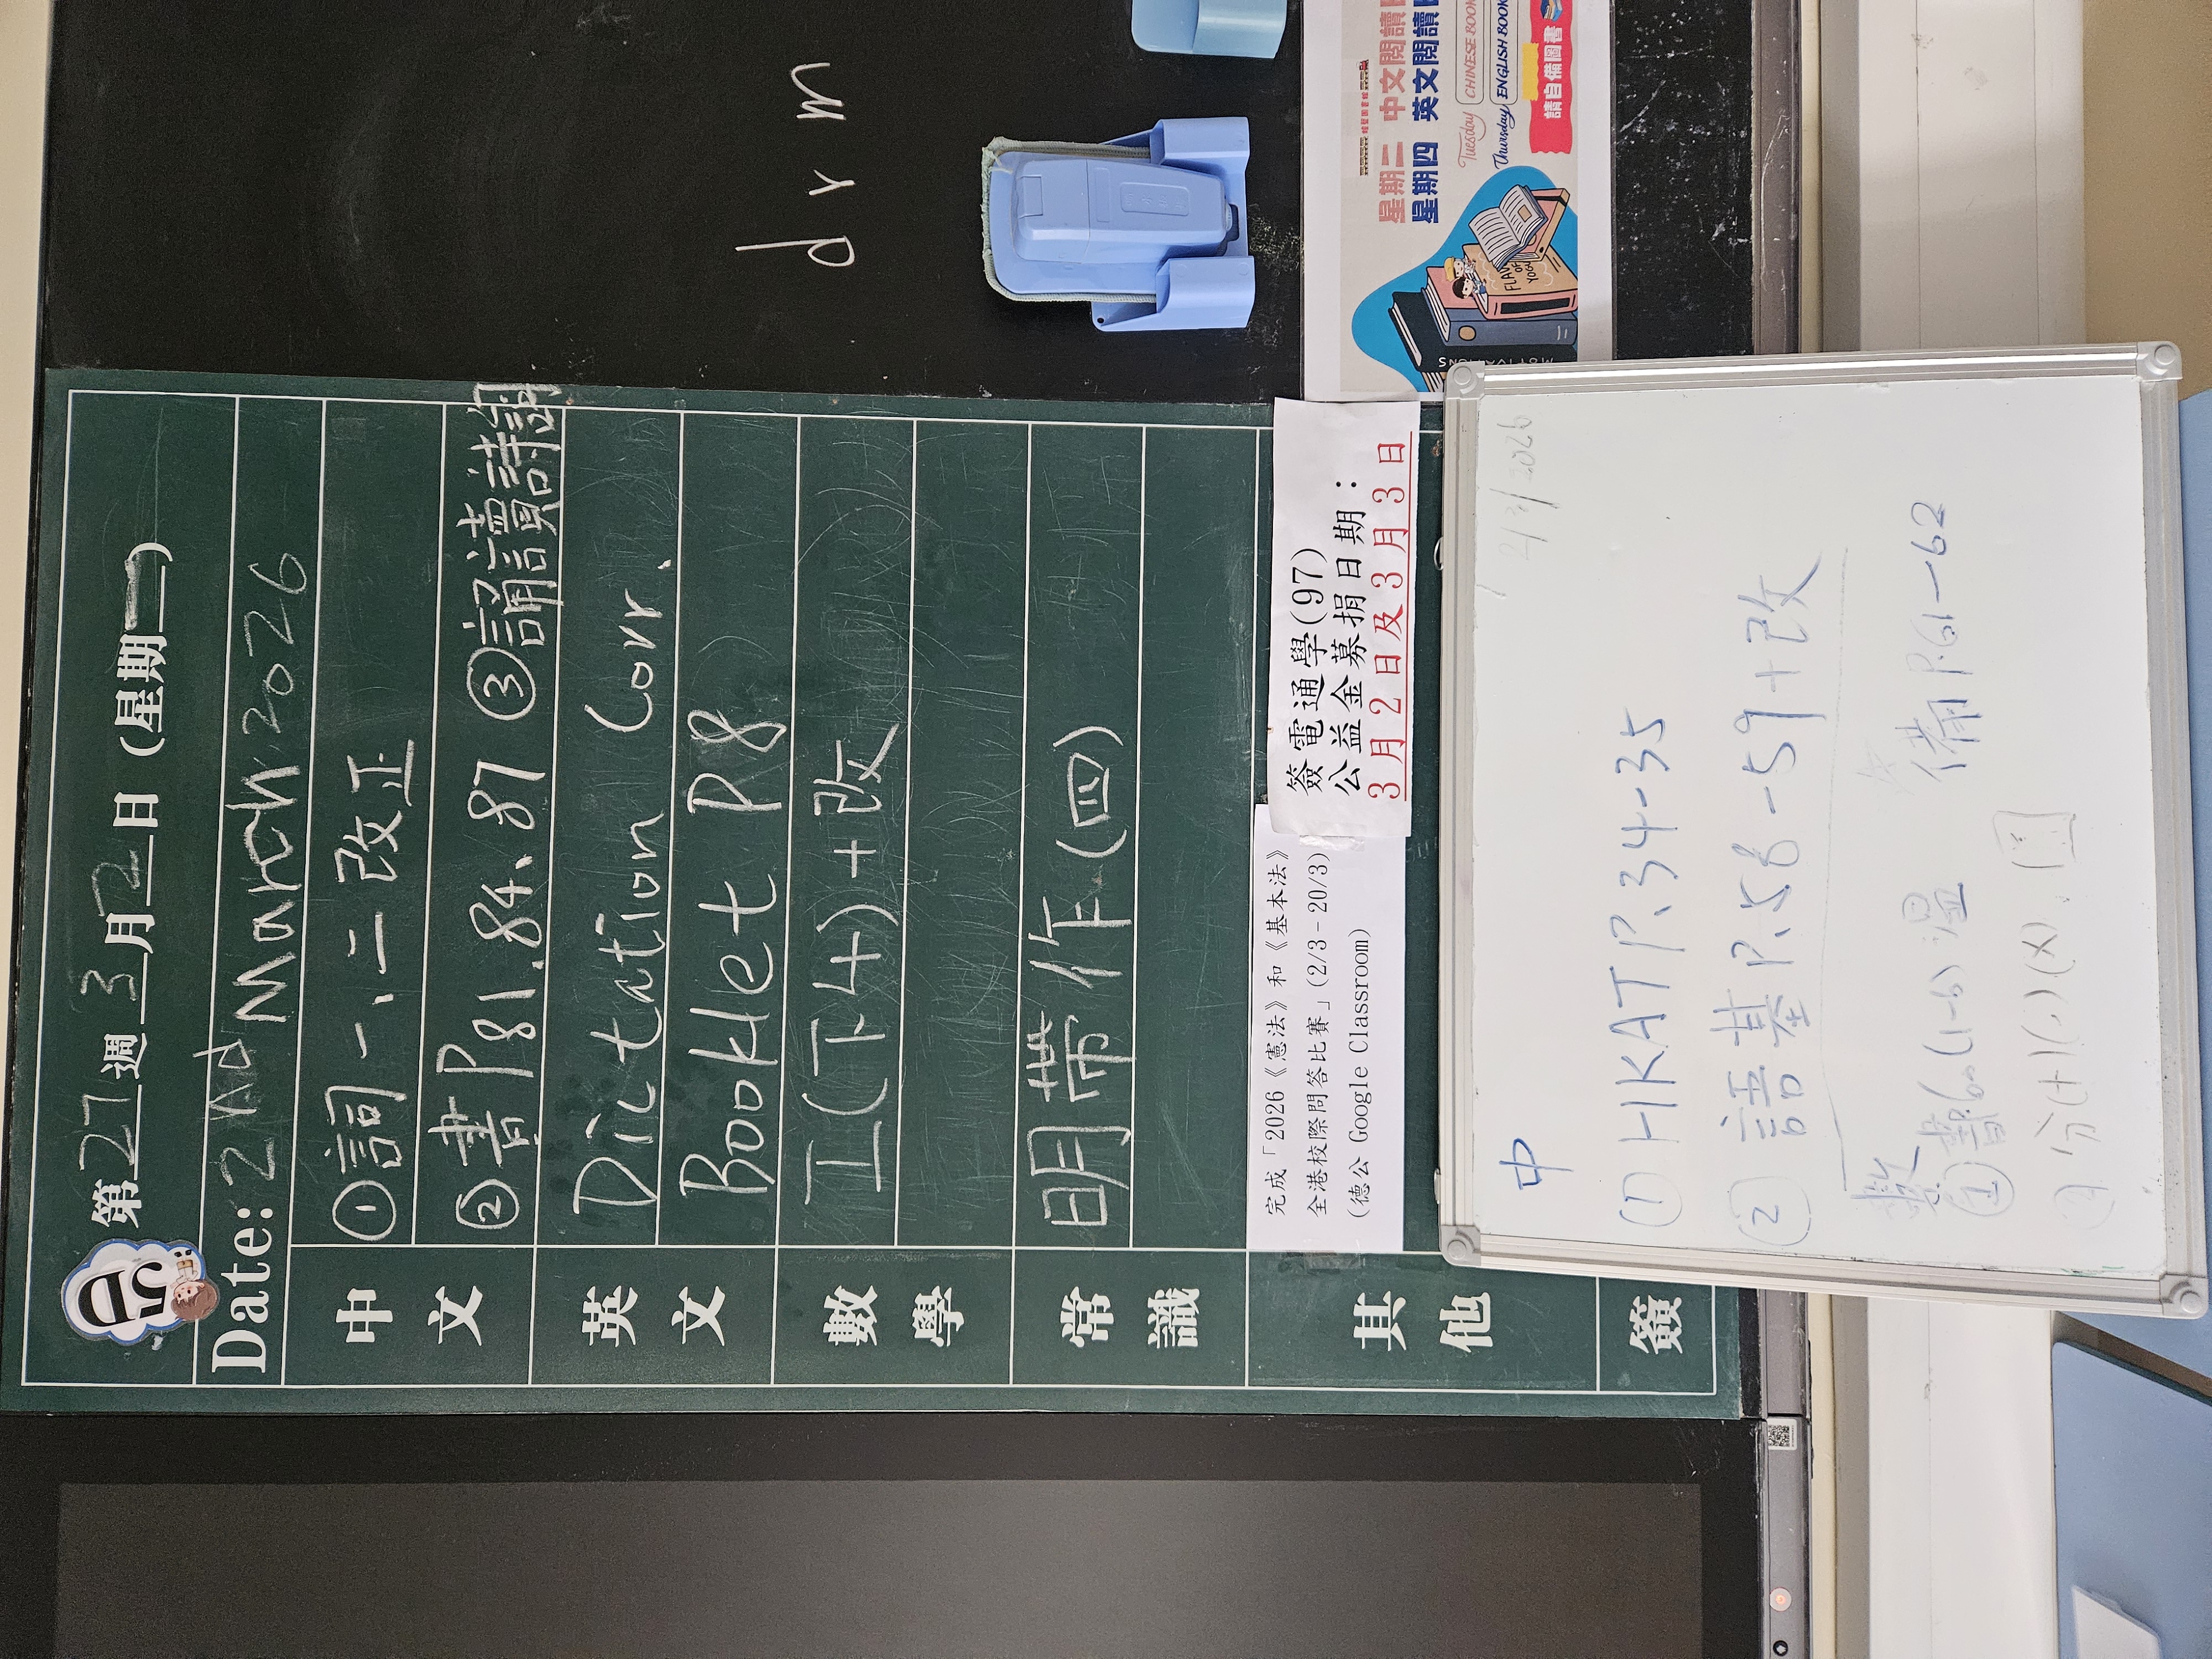 5D
第27週3月2日(星期一)
Date: 2nd March 2026
中文
①詞一、二改正
②書P81.84、87 ③誦讀謝
英文
Dictation Corr.
Booklet P8
數學
工(下4)+改
常識
明帶作(四)
其他
完成「2026《憲法》和《基本法》
全港校際問答比賽」(2/3-20/3)
(德公 Google Classroom)
簽電通學(97)
公益金募捐日期：
3月2日及3月3日
簽
d r n
星期二 中文閱讀
星期四 英文閱讀
Tuesday CHINESE BOOK
Thursday ENGLISH BOOK
請自備圖書
MOTIVATIONS
2/3/2026
中
(1) HKAT P.34-35
(2) 語基P.58-59+改
數
備P.61-62